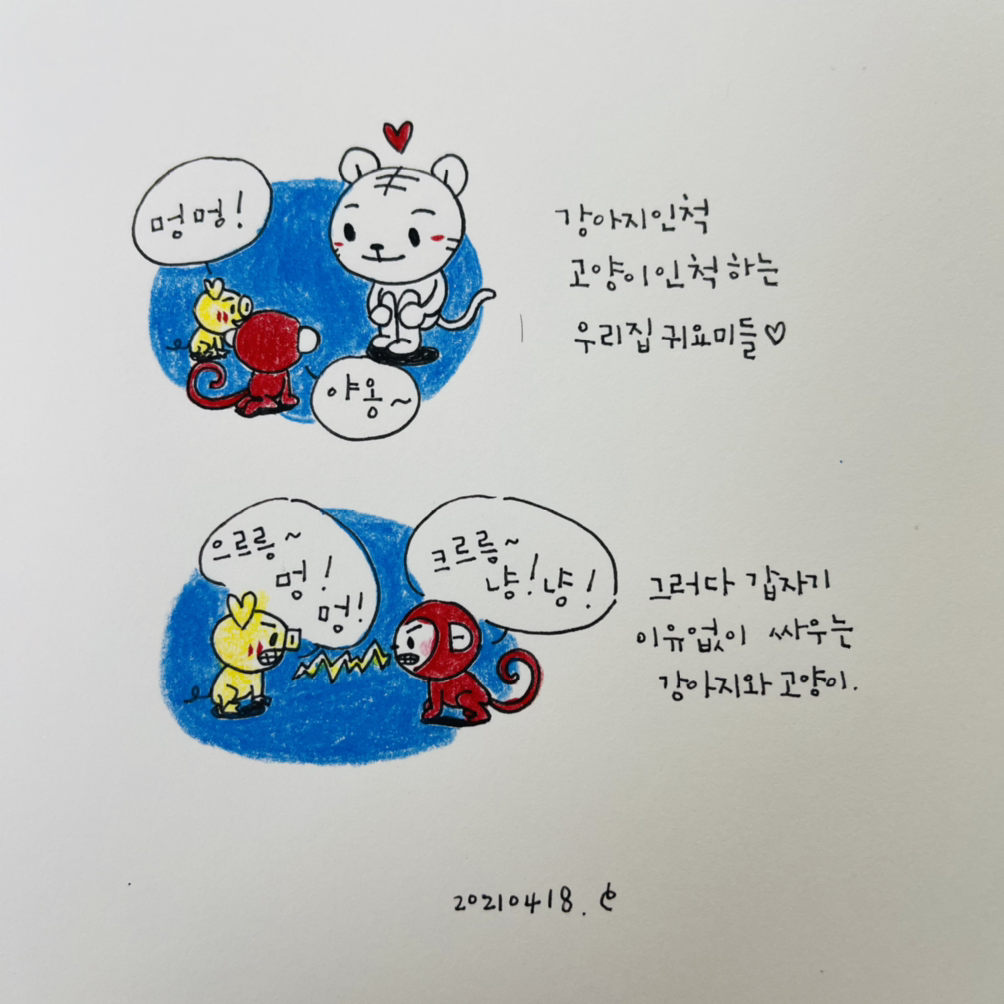 멍멍!
강아지인척
고양이인척 하는
우리집 귀요미들♡
야옹~
으르릉~
멍!
멍!
크르릉~
냥! 냥!
그러다 갑자기
이유없이 싸우는
강아지와 고양이.
20210418.